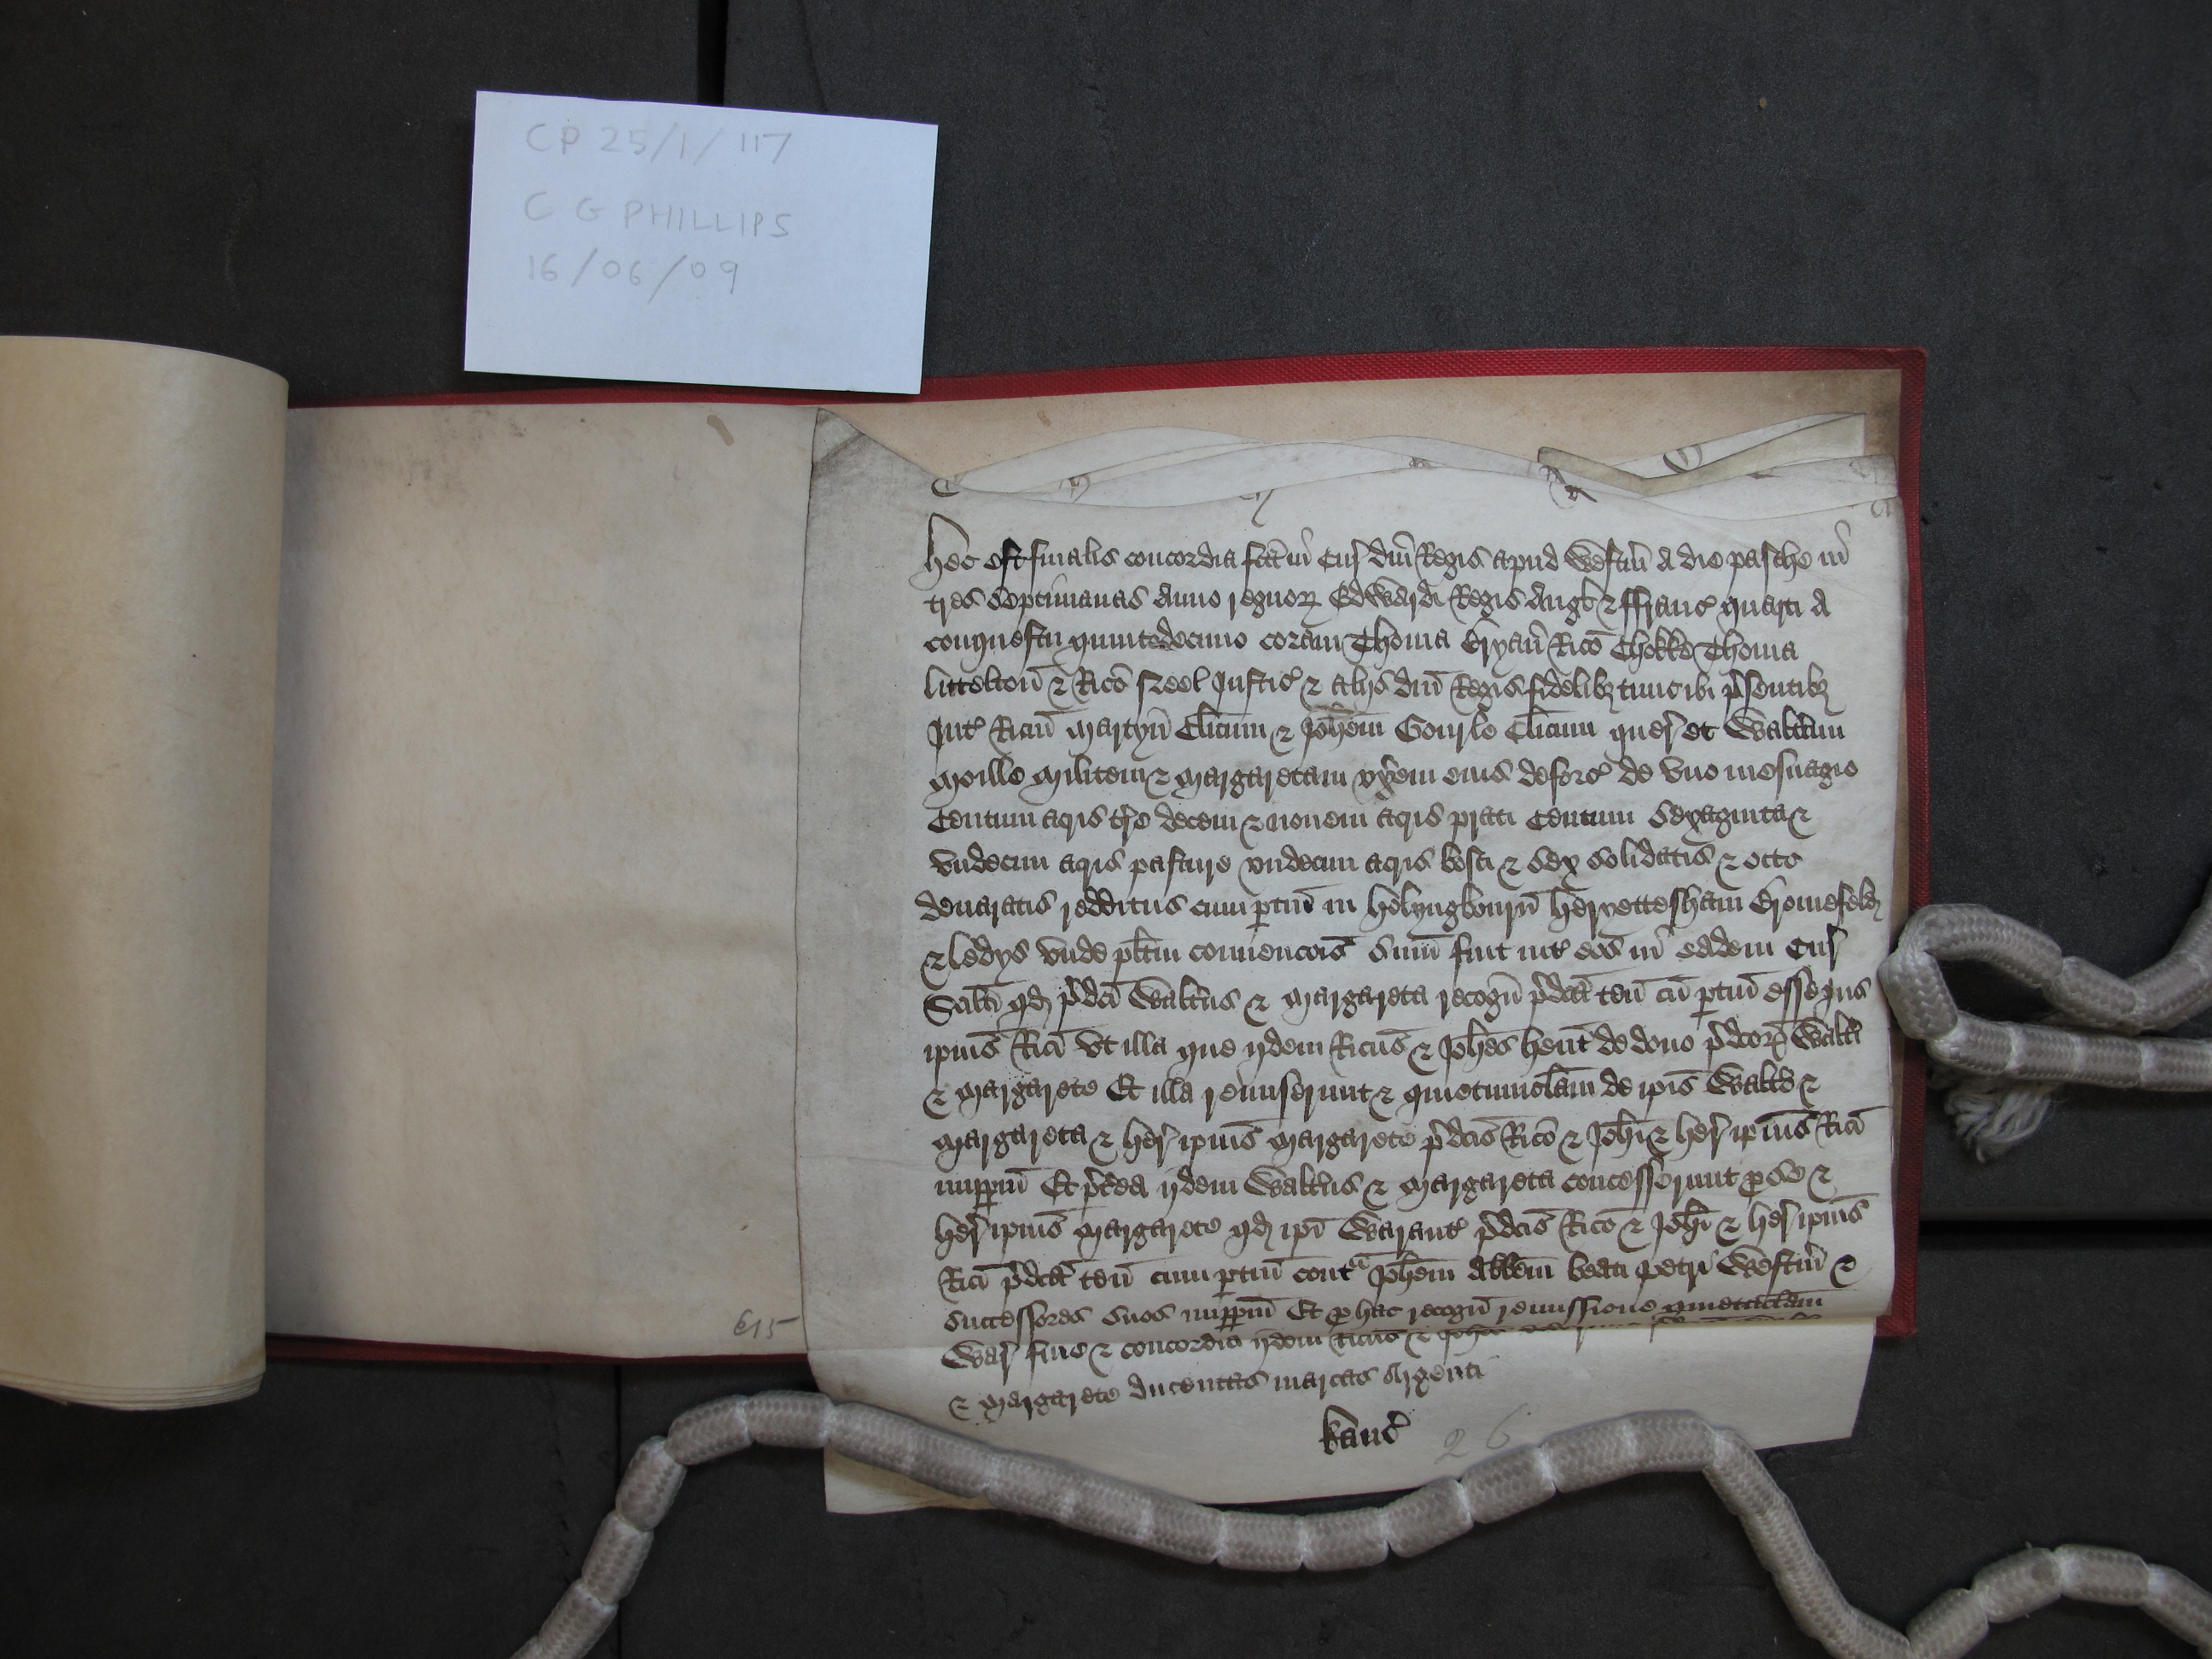 CP 25/1/117
C G PHILLIPS
16/06/09
Hec est finalis concordia fc̄a in Cur̄ dn̄i Regis apud Westm̄ A die pasche in
tres Septimanas Anno regnoꝝ Edwardi Regis Angl̄ ⁊ ffranc̄ quarti A
conquestu quintodecimo coram Thoma Bryan̄ Ric̄o Chokke Thoma
littelton̄ ⁊ Ric̄o Neel Justic̄ ⁊ alijs dn̄i Regis fidelibꝫ tunc ibi p̄sentibꝫ
Int̄ Ric̄m Martyn̄ Cl̄icum ⁊ Joh̄em Gourle Cl̄icum quer̄ et Walt̄um
Moille Militem ⁊ Margaretam vx̄em eius deforc̄ de vno mesuagio
Centum acris t̄re decem ⁊ nouem acris prati Centum Sexaginta ⁊
vndecim acris pasture vndecim acris bosci ⁊ Sex solidatis ⁊ octo
denaratis redditus cum ptin̄ in holyngbourn̄ heruettesham Bromefeld
⁊ ledys vnde pl̄itm conuencōis sum̄ fuit int̄ eos in eadem Cur̄
Scilt̄ qd̄ p̄dc̄i Walt̄us ⁊ Margareta recogn̄ p̄dc̄a ten̄ cū ptin̄ esse jus
ipius̄ Ric̄i vt illa que ijdem Ric̄us ⁊ Joh̄es hent̄ de dono p̄dc̄oꝝ Walt̄i
⁊ Margarete Et illa remiserunt ⁊ quietumclam̄ de ip̄is Walt̄o ⁊
Margareta ⁊ her̄ ipius̄ Margarete p̄dc̄is Ric̄o ⁊ Joh̄i ⁊ her̄ ipius̄ Ric̄i
imppm̄ Et p̄t̄ea ijdem Walt̄us ⁊ Margareta concesserunt p se ⁊
her̄ ipius̄ Margarete qd̄ ip̄i Warant̄ p̄dc̄is Ric̄o ⁊ Joh̄i ⁊ her̄ ipius̄
Ric̄i p̄dc̄a ten̄ cum ptin̄ contᵃ Joh̄em Abb̄em beati Petri Westm̄ ⁊
successores suos imppm̄ Et p hac recogn̄ remissione quietaclam̄
War̄ fine ⁊ concordia ijdem Ric̄us ⁊ Joh̄es
⁊ Margarete ducentas marcas Argenti
kanc̄
26
615